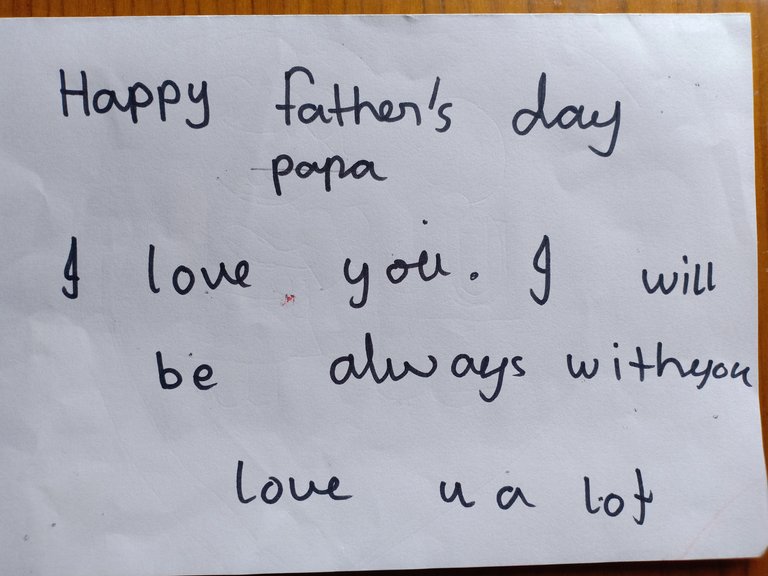 Happy father's day
papa
I love you. I will
be always withyou
love u a lot